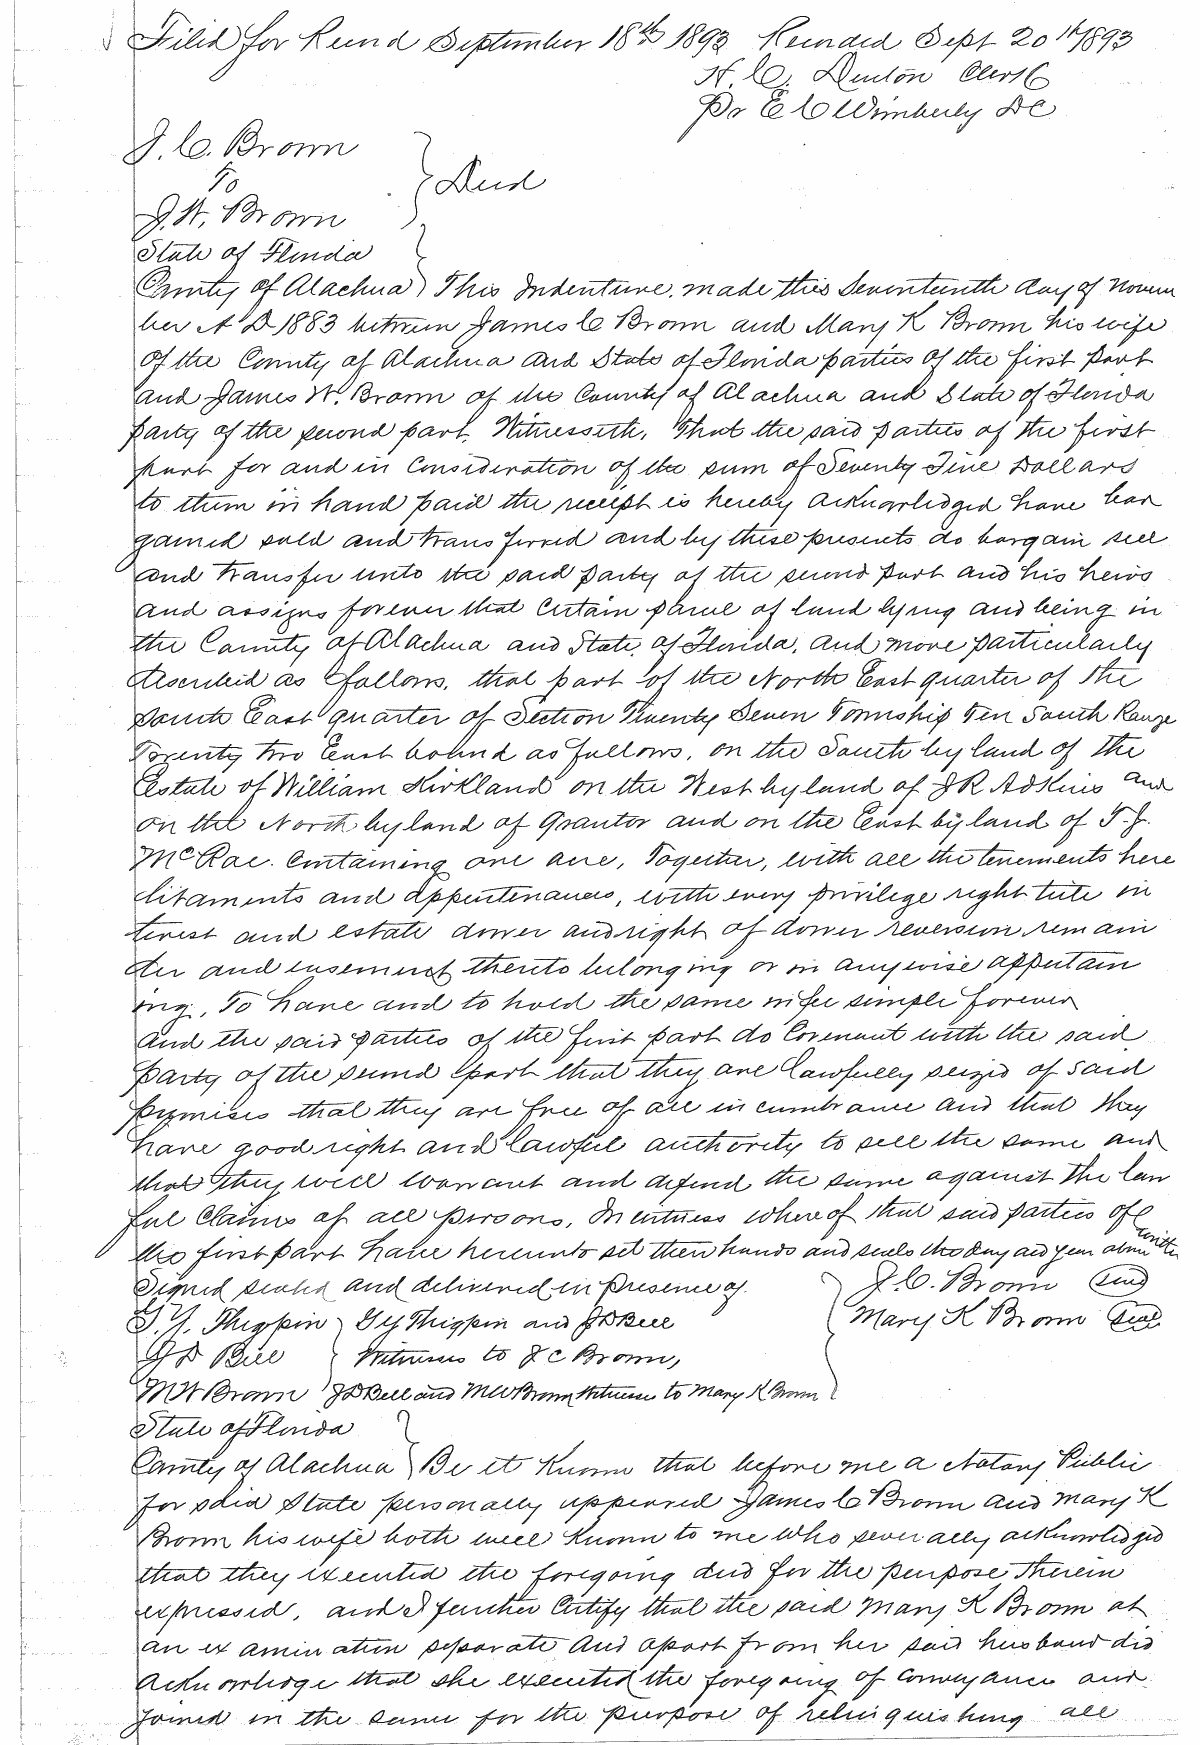 Filed for Record September 18th 1893 Recorded Sept 20th 1893
H. C. Denton Clerk
Pr E C Wimberly DC
J. C. Brown
To
Deed
J. W. Brown
State of Florida
County of Alachua } This Indenture, made this Seventeenth day of Novem
ber A D 1883 between James C Brown and Mary K Brown his wife
of the County of Alachua and State of Florida parties of the first part
and James W. Brown of the County of Alachua and State of Florida
party of the second part, Witnesseth, That the said parties of the first
part for and in Consideration of the sum of Seventy Five Dollars
to them in hand paid the receipt is hereby acknowledged have bar
gained sold and transferred and by these presents do bargain sell
and transfer unto the said party of the second part and his heirs
and assigns forever that certain parcel of land lying and being in
the County of Alachua and State of Florida, and more particularly
described as follows. that part of the North East quarter of the
South East quarter of Section Twenty Seven Township Ten South Range
Twenty two East bound as follows, on the South by land of the
Estate of William Kirkland on the West by land of J R Adkins and
on the North by land of Grantor and on the East by land of T. J.
McRae. Containing one acre, Together, with all the tenements here
ditaments and appurtenances, with every privilege right title in
terest and estate dower and right of dower reversion remain
der and easement thereto belonging or in anywise appertain
ing, To have and to hold the same in fee simple forever
And the said parties of the first part do Covenant with the said
party of the second part that they are lawfully seized of said
premises that they are free of all incumbrance and that they
have good right and lawful authority to sell the same and
that they will warrant and defend the same against the law
ful claims of all persons, In witness whereof that said parties of
the first part have hereunto set their hands and seals the day and year above written
Signed sealed and delivered in presence of J. C. Brown (seal)
G. Y. Thigpin } G Y Thigpin and J D Bell Mary K Brown (seal)
J D Bell } Witnesses to J C Brown,
M W Brown } J D Bell and M W Brown Witness to Mary K Brown
State of Florida
County of Alachua } Be it Known that before me a Notary Public
for said State personally appeared James C Brown and Mary K
Brown his wife both well Known to me who severally acknowledged
that they executed the foregoing deed for the purpose therein
expressed, and I further Certify that the said Mary K Brown at
an examination separate and apart from her said husband did
acknowledge that she executed the foregoing of conveyance and
joined in the same for the purpose of relinquishing all